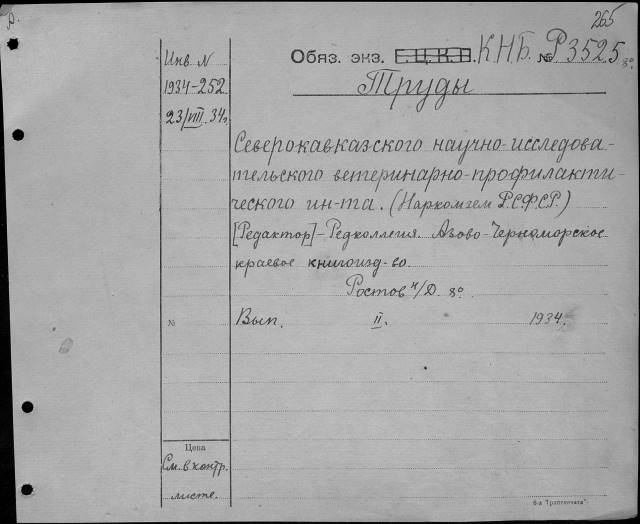 265
Инв. N
1934-252
23/VIII. 34г.
Обяз. экз. Г.Ц.К.П. К.Н.Б. № Р3525 8º
Труды
Северокавказского научно-исследова-
тельского ветеринарно-профилакти-
ческого ин-та. (Наркомзем Р.С.Ф.С.Р.)
[Редактор]-Редколлегия. Азово-Черноморское
краевое книгоизд-во.
Ростов н/Д. 8º
№
Вып. II. 1934.
Цена
См. в контр.
листе.
6-я "Транспечать"